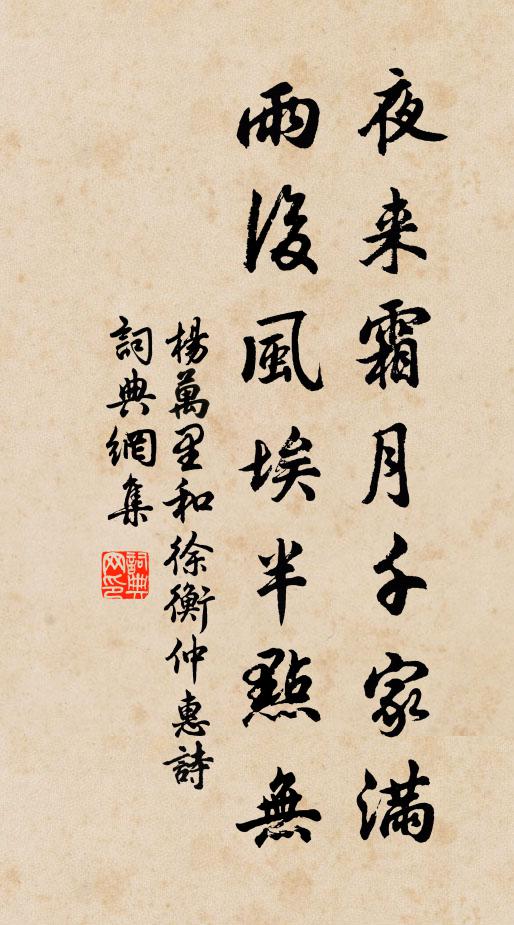 夜来霜月千家满
雨後風埃半點無
楊萬里和徐衡仲惠詩
詞典網集
詞典网印